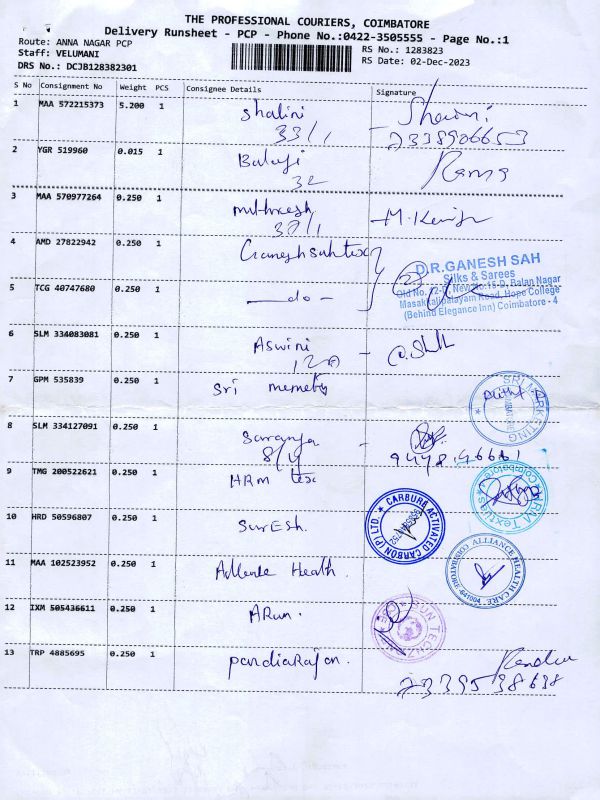 THE PROFESSIONAL COURIERS, COIMBATORE
Delivery Runsheet - PCP - Phone No.:0422-3505555 - Page No.:1
Route: ANNA NAGAR PCP
RS No.: 1283823
Staff: VELUMANI
RS Date: 02-Dec-2023
DRS No.: DCJB128382301
S No Consignment No Weight PCS Consignee Details Signature
1 MAA 572215373 5.200 1 Shalini
33/1
2338906653
2 YGR 519960 0.015 1 Balaji Rama
32
3 MAA 570977264 0.250 1
38/1
4 AMD 27822942 0.250 1 Ganesh sah tex
D.R.GANESH SAH
Silks & Sarees
Old No. 12-C, New No:15-D, Balan Nagar
Masakkalipalayam Road, Hope College
(Behind Elegance Inn) Coimbatore - 4
5 TCG 40747680 0.250 1 —do—
6 SLM 334083081 0.250 1 Aswini
120
7 GPM 535839 0.250 1 Sri
SRI MARKETING
8 SLM 334127091 0.250 1 Saranya
8/4
9 TMG 200522621 0.250 1 HRM tex
10 HRD 50596807 0.250 1 SurESh.
CARBURG ACTIVATED CARBON (P) LTD
11 MAA 102523952 0.250 1 Health.
ALLIANCE HEALTH CARE
COIMBATORE-641004
12 IXM 505436611 0.250 1 ARun.
13 TRP 4885695 0.250 1 pandiaRajan.
2339538698